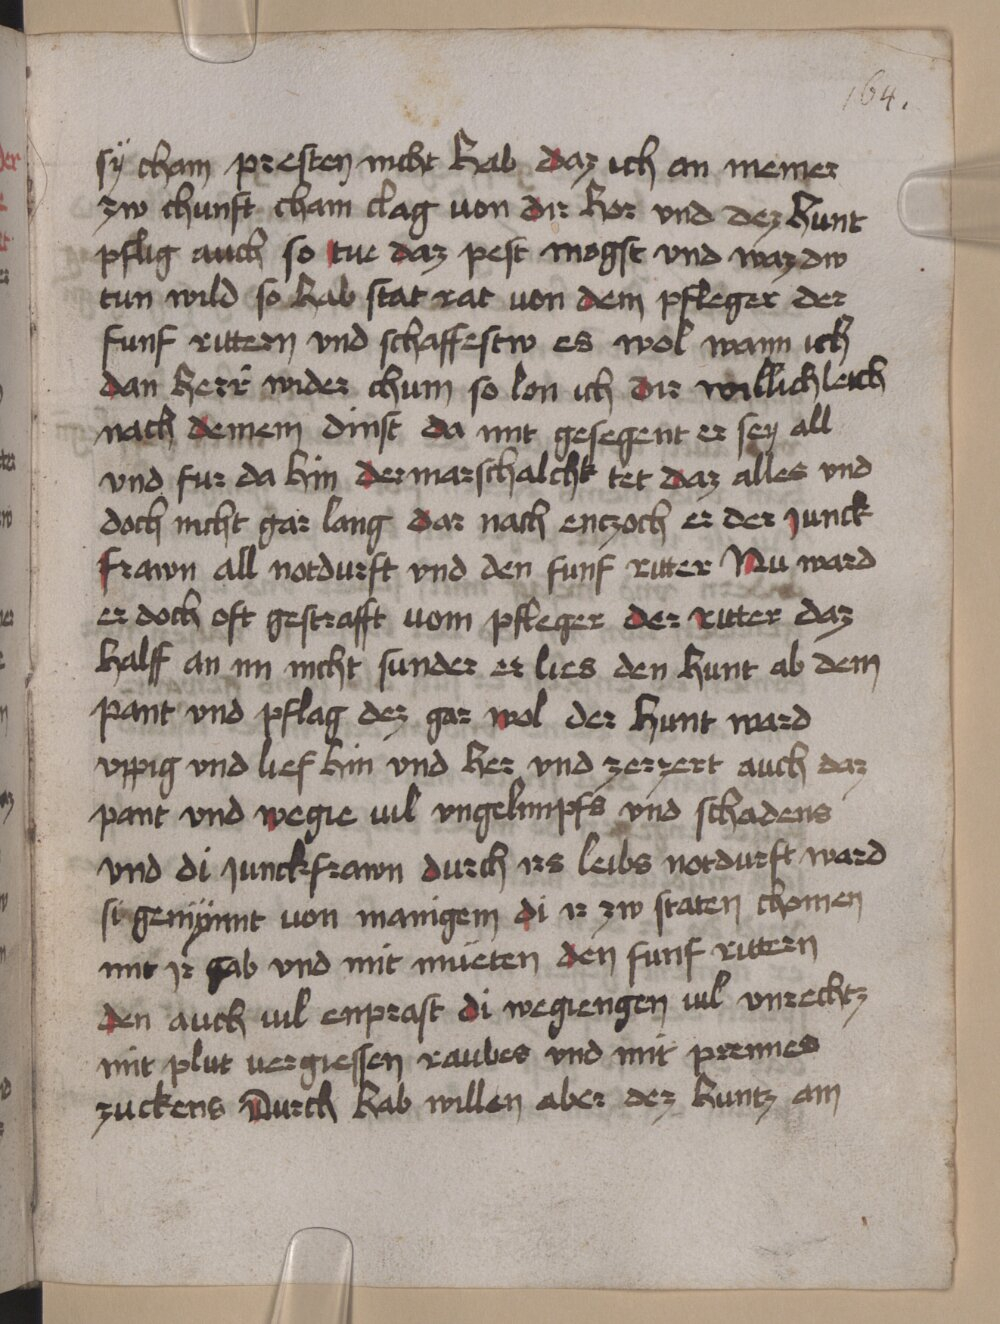 164.
sÿ cham presten nicht hab daz ich an meiner
zw chunft cham clag von dir hor vnd dez hunt
pflig auch so tue daz pest mogst vnd waz dw
tun wild so hab stat rat von dem pfleger der
funf rittern vnd schaffestw es wol wann ich
dan herr wider chum so lon ich dir willichleich
nach deinem dinst da mit gesegent er sey all
vnd fur da hin der marschalchk tet daz alles vnd
doch nicht gar lang dar nach enczoch er der junck
frawn all notdurft vnd den funf ritter Nu ward
er doch oft gestrafft vom pfleger der ritter daz
half an im nicht sunder er lies den hunt ab dem
pant vnd pflag dez gar wol der hunt ward
vppig vnd lief hin vnd her vnd zerzert auch daz
pant vnd wegie vil vngelimpfs vnd schadens
vnd di junckfrawn durch irs leibs notdurft ward
si gemÿnnt von manigem di ir zw staten chomen
mit jr gab vnd mit mueten den funf rittern
den auch vil enprast di wegiengen vil vnrechtz
mit plut vergiessen raubes vnd mit prennes
zuckens Durch hab willen aber dez huntz am